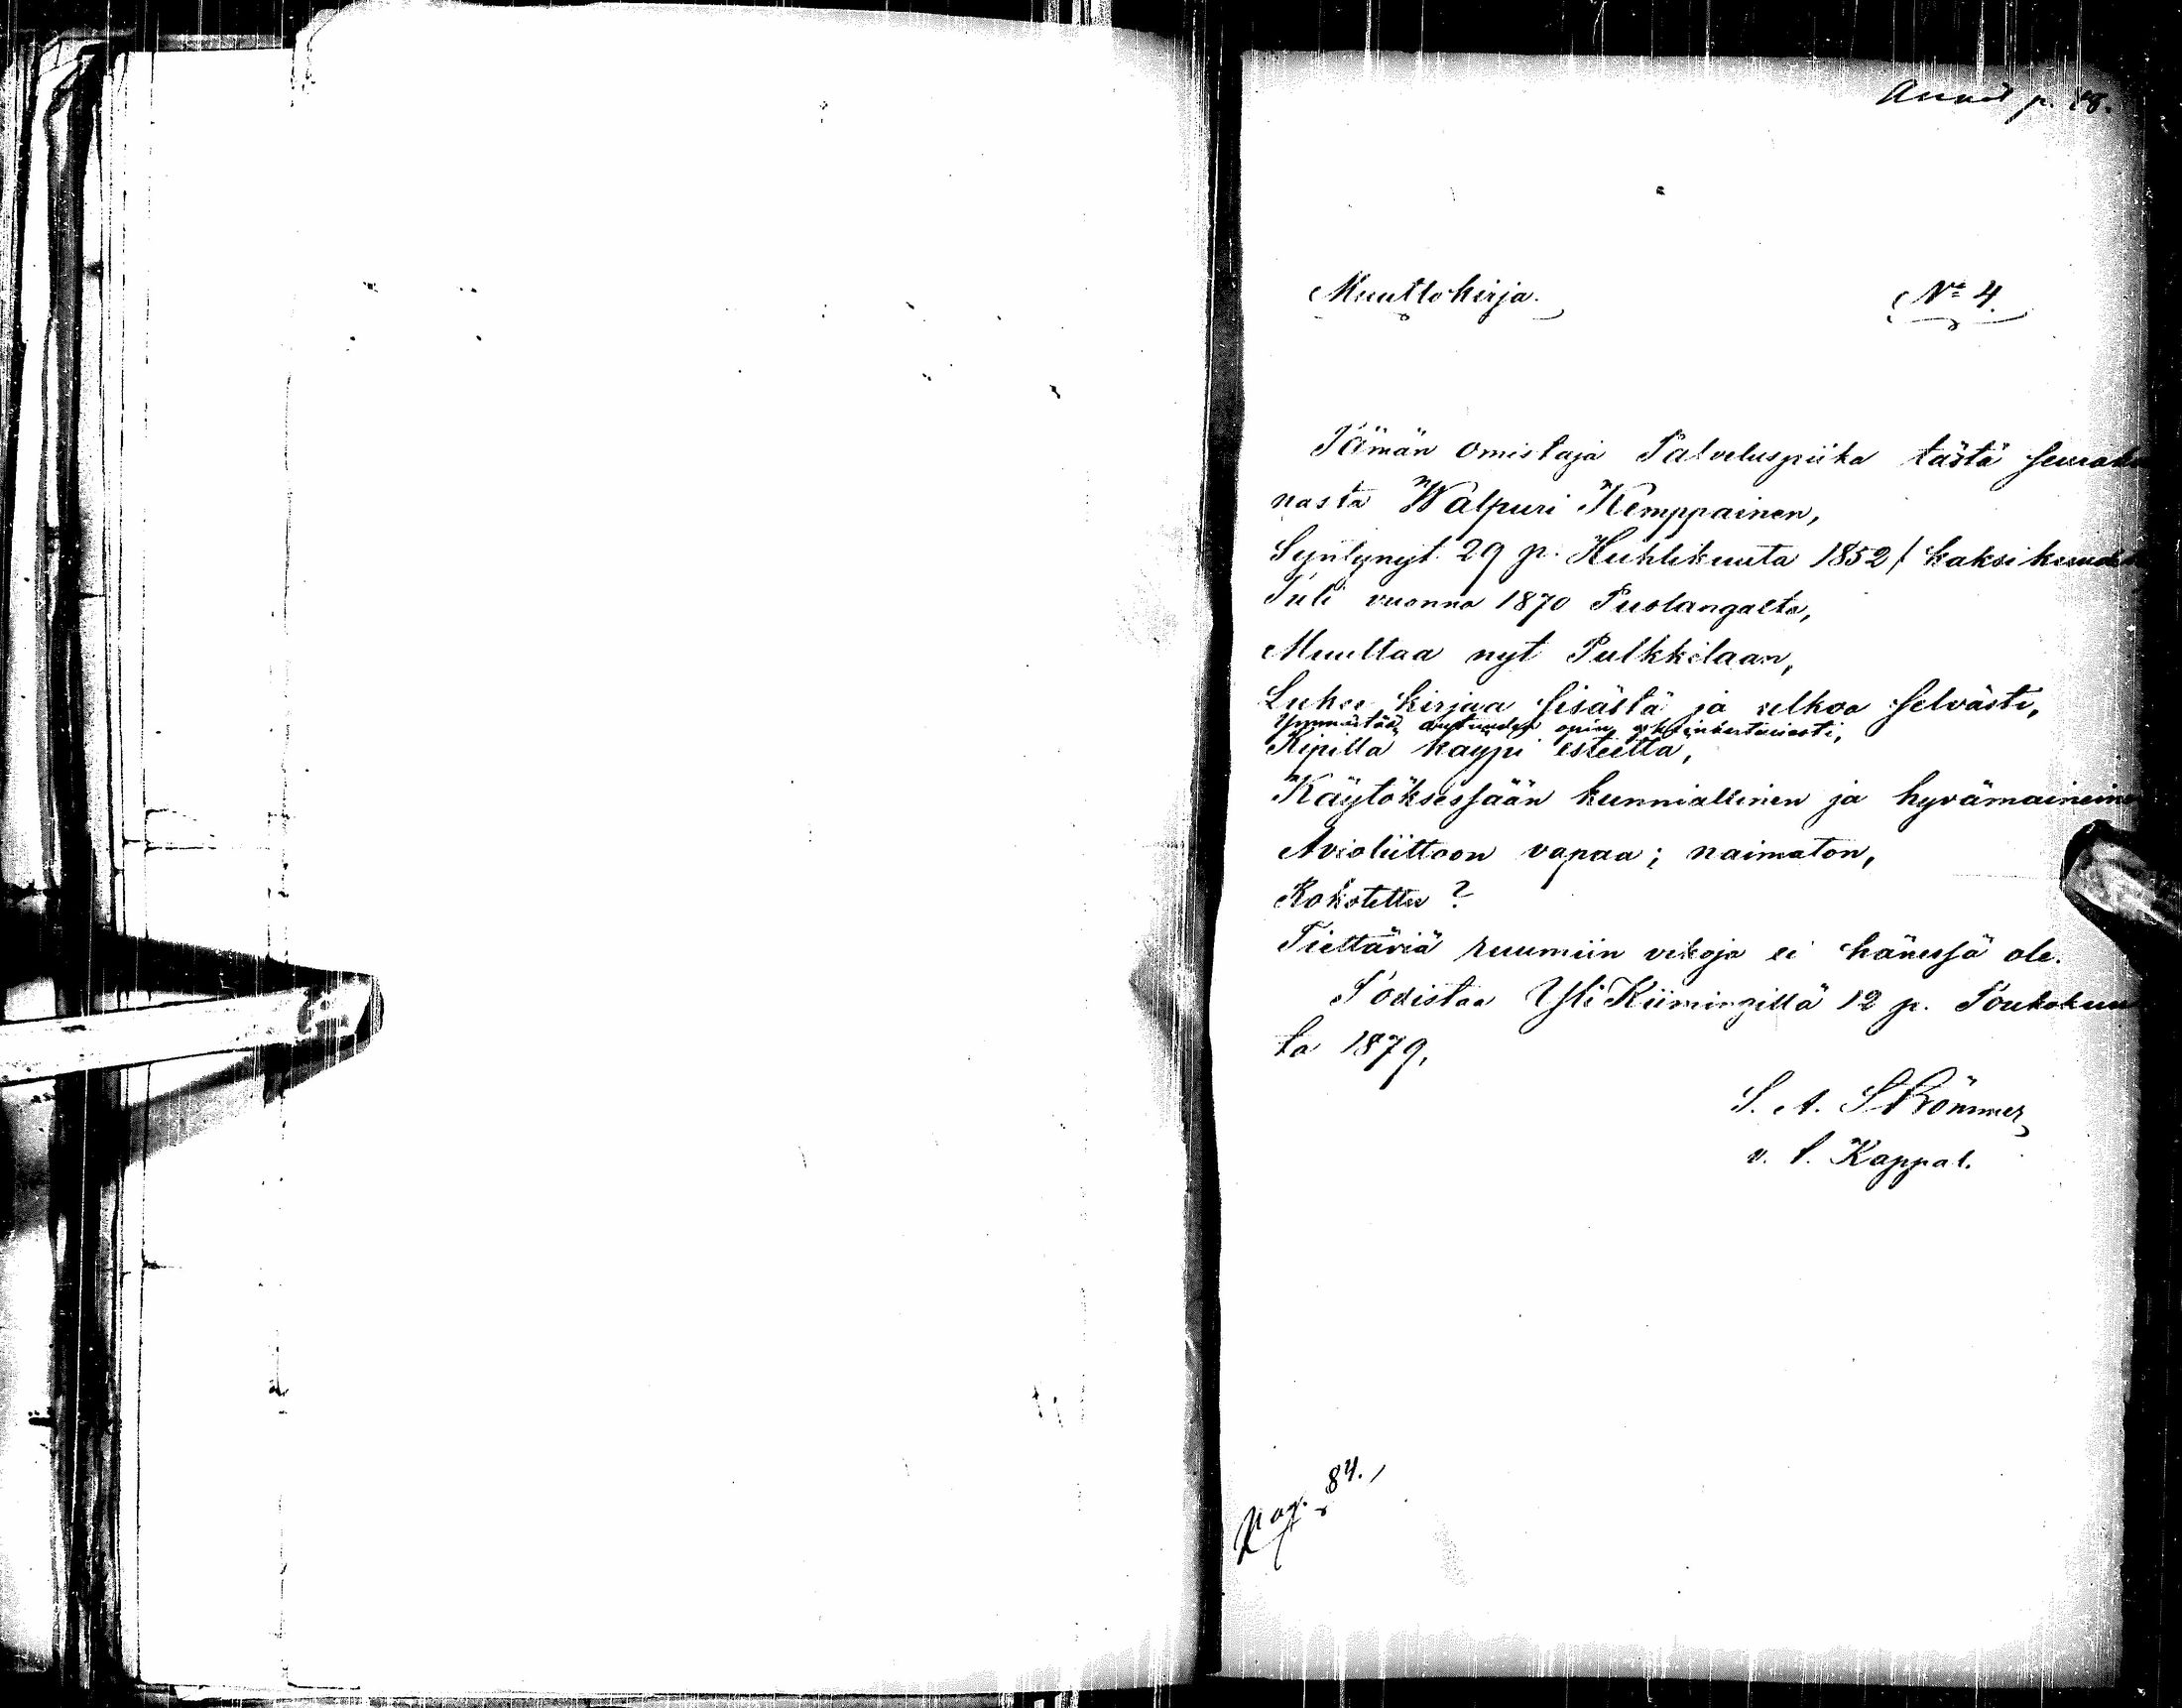 p. 18.
Muuttokirja. N:o 4.
Tämän omistaja Palveluspiika tästä seuraku
nasta Walpuri Kemppainen,
Syntynyt 29 p. Huhtikuuta 1852 / kaksikuudet
Tuli vuonna 1870 Puolangalta,
Muuttaa nyt Pulkkilaan,
Lukee kirjaa sisästä ja ulkoa selvästi,
Ymmärtää autuuden opin yksinkertaisesti,
Ripillä käypi esteettä,
Käytöksessään kunniallinen ja hyvämaineinen
Avioliittoon vapaa; naimaton,
Rokotettu?
Tiettäviä ruumiin vikoja ei hänessä ole.
Todistaa Yli Kiimingillä 12 p. Toukokuu
ta 1879.
S. A. Strömmer
v. t. Kappal.
pag. 84.